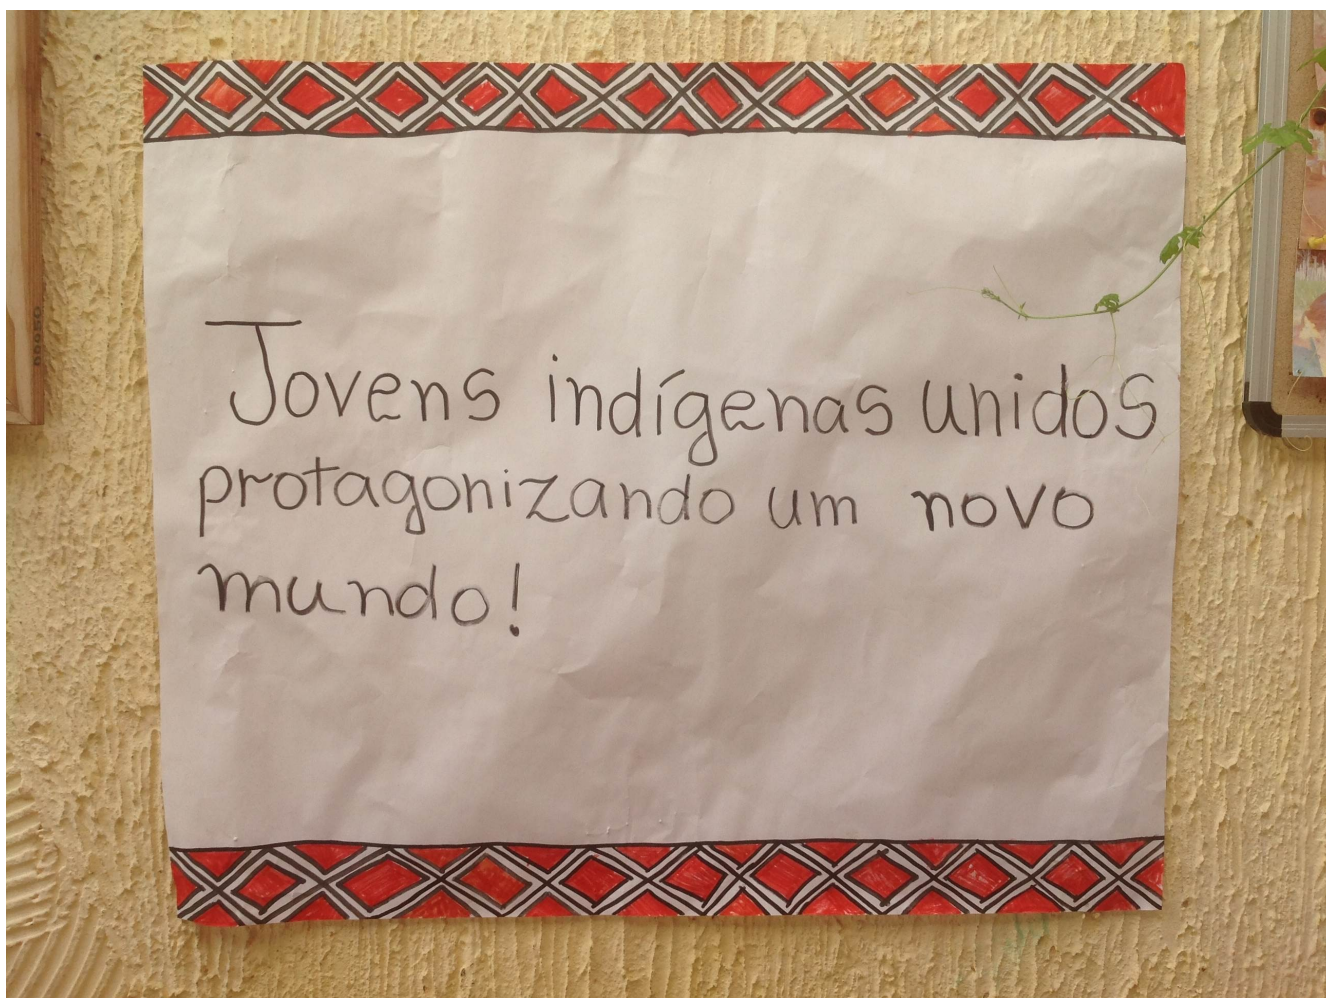 Jovens indígenas unidos
protagonizando um novo
mundo!